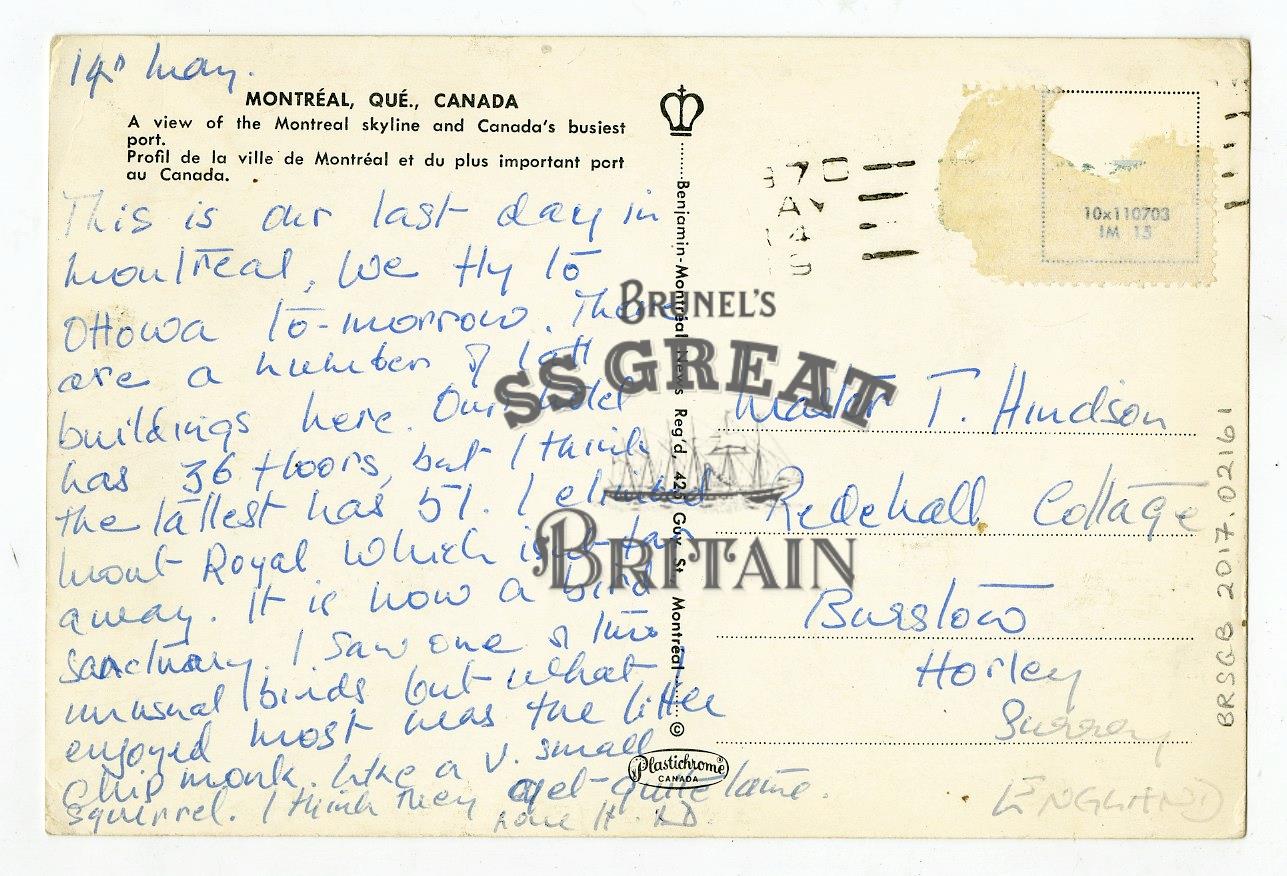 14th May.
MONTRÉAL, QUÉ., CANADA
A view of the Montreal skyline and Canada's busiest
port.
Profil de la ville de Montréal et du plus important port
au Canada.
This is our last day in
Montreal, We fly to
Ottowa to-morrow. There
are a number of tall
buildings here. Our hotel
has 36 floors, but I think
the tallest has 51. I climbed
Mont Royal which is
away. It is now a bird
sanctuary. I saw one or two
unusual birds but what I
enjoyed most was the little
chip monk. Like a v. small
squirrel. I think they get quite tame.
Love
Benjamin-Montréal News Reg'd, 425 Guy St., Montréal ©
Plastichrome
CANADA
10x110703
1M 15
Master T. Hindson
Redehall Cottage
Burstow
Horley
Surrey
ENGLAND
BRSGB 2017.02161
BRUNEL'S
SS GREAT
BRITAIN